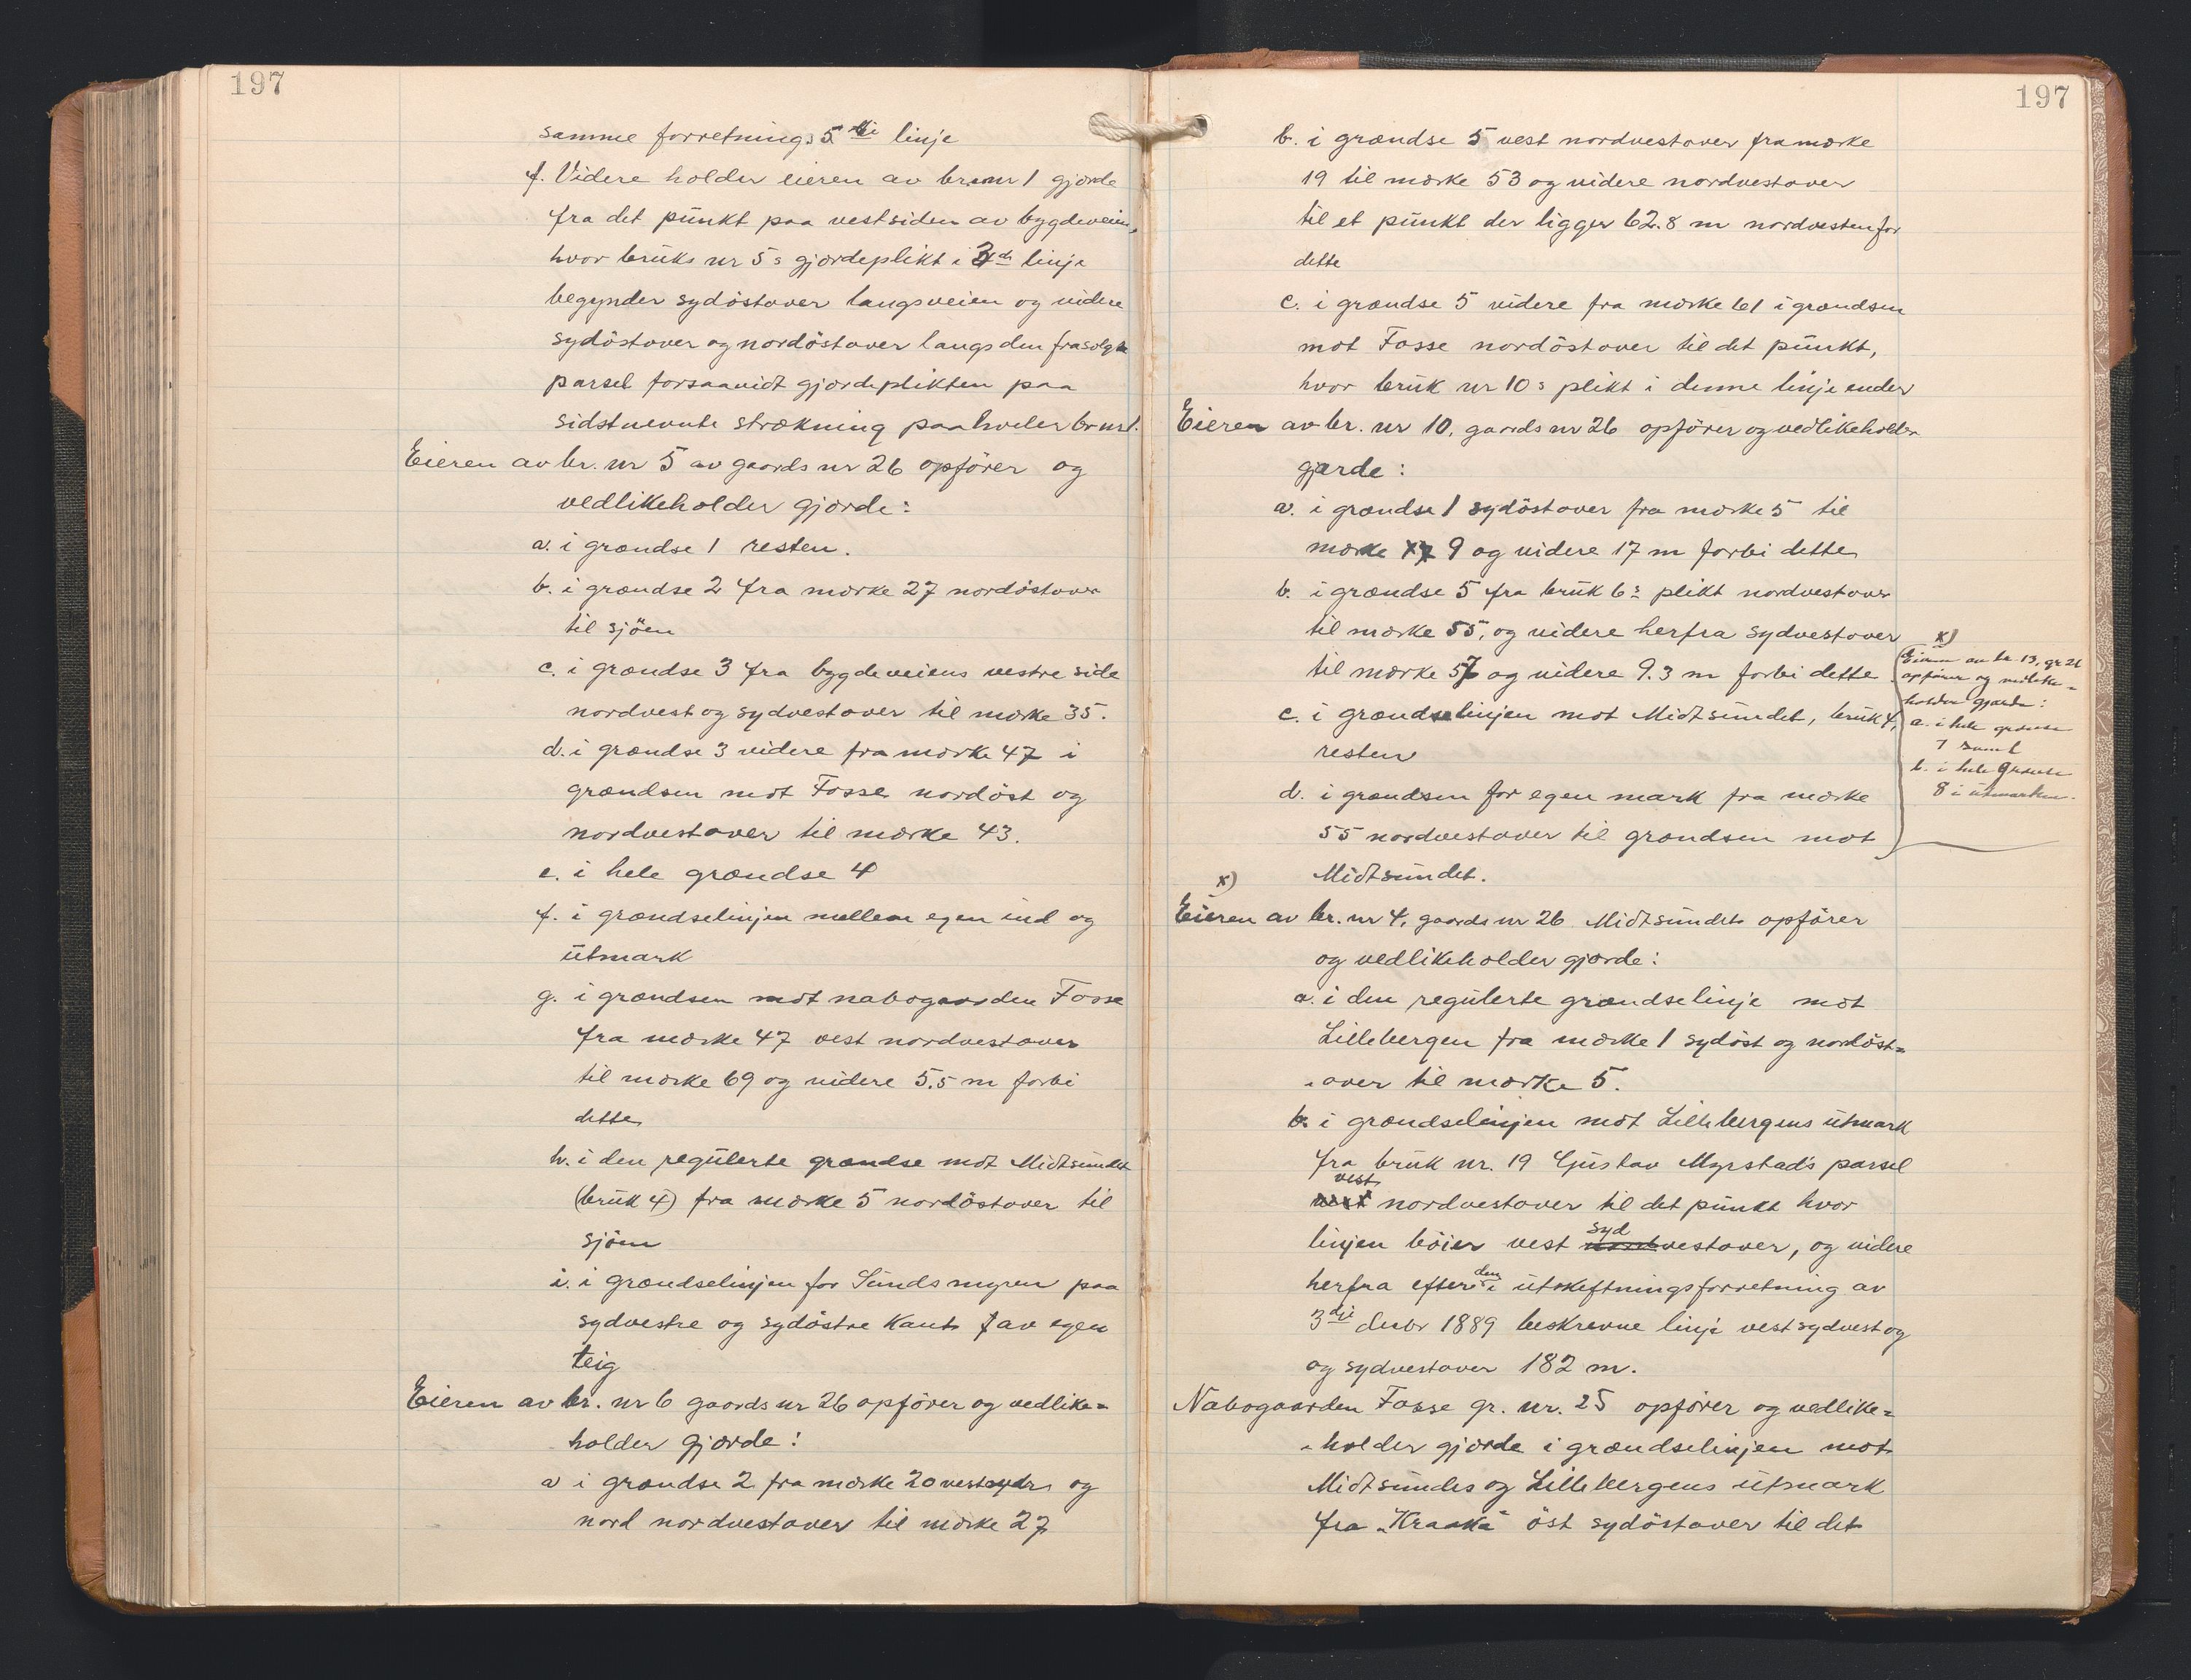 197
samme forretnings 5 te linje
f. Videre holder eieren av br. nr 1 gjærde
fra det punkt paa vestsiden av bygdeveien,
hvor bruks nr 5s gjærdeplikt i 3die linje
begynder sydöstover langs veien og videre
sydöstover og nordöstover langs den frasolgte
parsel forsaavidt gjærdeplikten paa
sidstnevnte strækning paahviler br nr 1.
Eieren av br. nr 5 av gaards nr 26 opförer og
vedlikeholder gjærde:
a. i grændse 1 resten.
b. i grændse 2 fra mærke 27 nordöstover
til sjöen
c. i grændse 3 fra bygdeveiens vestre side
nordvest og sydvestover til mærke 35.
d. i grændse 3 videre fra mærke 47 i
grændsen mot Fosse nordöst og
nordvestover til mærke 43.
e. i hele grændse 4
f. i grændselinjen mellem egen ind og
utmark
g. i grændsen mot nabogaarden Fosse
fra mærke 47 vest nordvestover
til mærke 69 og videre 5.5 m forbi
dette
h. i den regulerte grændse mot Midtsundet
(bruk 4) fra mærke 5 nordöstover til
sjöen
i. i grændselinjen for Sundsmyren paa
sydvestre og sydöstre kant av egen
teig
Eieren av br. nr 6 gaards nr 26 opförer og vedlike=
holder gjærde:
a i grændse 2 fra mærke 20 vest og
nord nordvestover til mærke 27
197
b. i grændse 5 vest nordvestover fra mærke
19 til mærke 53 og videre nordvestover
til et punkt der ligger 62.8 m nordvestenfor
dette
c. i grændse 5 videre fra mærke 61 i grændsen
mot Fosse nordöstover til det punkt,
hvor bruk nr 10s plikt i denne linje ender
Eieren av br. nr 10, gaards nr 26 opförer og vedlikeholder
gjærde:
a. i grændse 1 sydöstover fra mærke 5 til
mærke 9 og videre 17 m forbi dette
b. i grændse 5 fra bruk 6s plikt nordvestover
til mærke 55, og videre herfra sydvestover
til mærke 57 og videre 9.3 m forbi dette
c. i grændselinjen mot Midtsundet, bruk 4,
resten
d. i grændsen for egen mark fra mærke
55 nordvestover til grændsen mot
Midtsundet.
x)
Eieren av br. 13, gr 26
opförer og vedlike=
holder gjærde:
a. i hele grændse
7 samt
b. i hele grændse
8 i utmarken.
x)
Eieren av br. nr 4, gaards nr 26 Midtsundet opförer
og vedlikeholder gjærde:
a. i den regulerte grændselinje mot
Lillebergen fra mærke 1 sydöst og nordöst=
=over til mærke 5.
b. i grændselinjen mot Lillebergens utmark
fra bruk nr. 19 Gustav Myrstads parsel
vest
nordvestover til det punkt hvor
syd
linjen böier vest vestover, og videre
herfra efter den i utskeftningsforretning av
3die decbr 1889 beskrevne linje vest sydvest og
og sydvestover 182 m.
Nabogaarden Fosse gr. nr. 25 opförer og vedlike=
=holder gjærde i grændselinjen mot
Midtsundes og Lillebergens utmark
fra "Kraaka" öst sydöstover til det